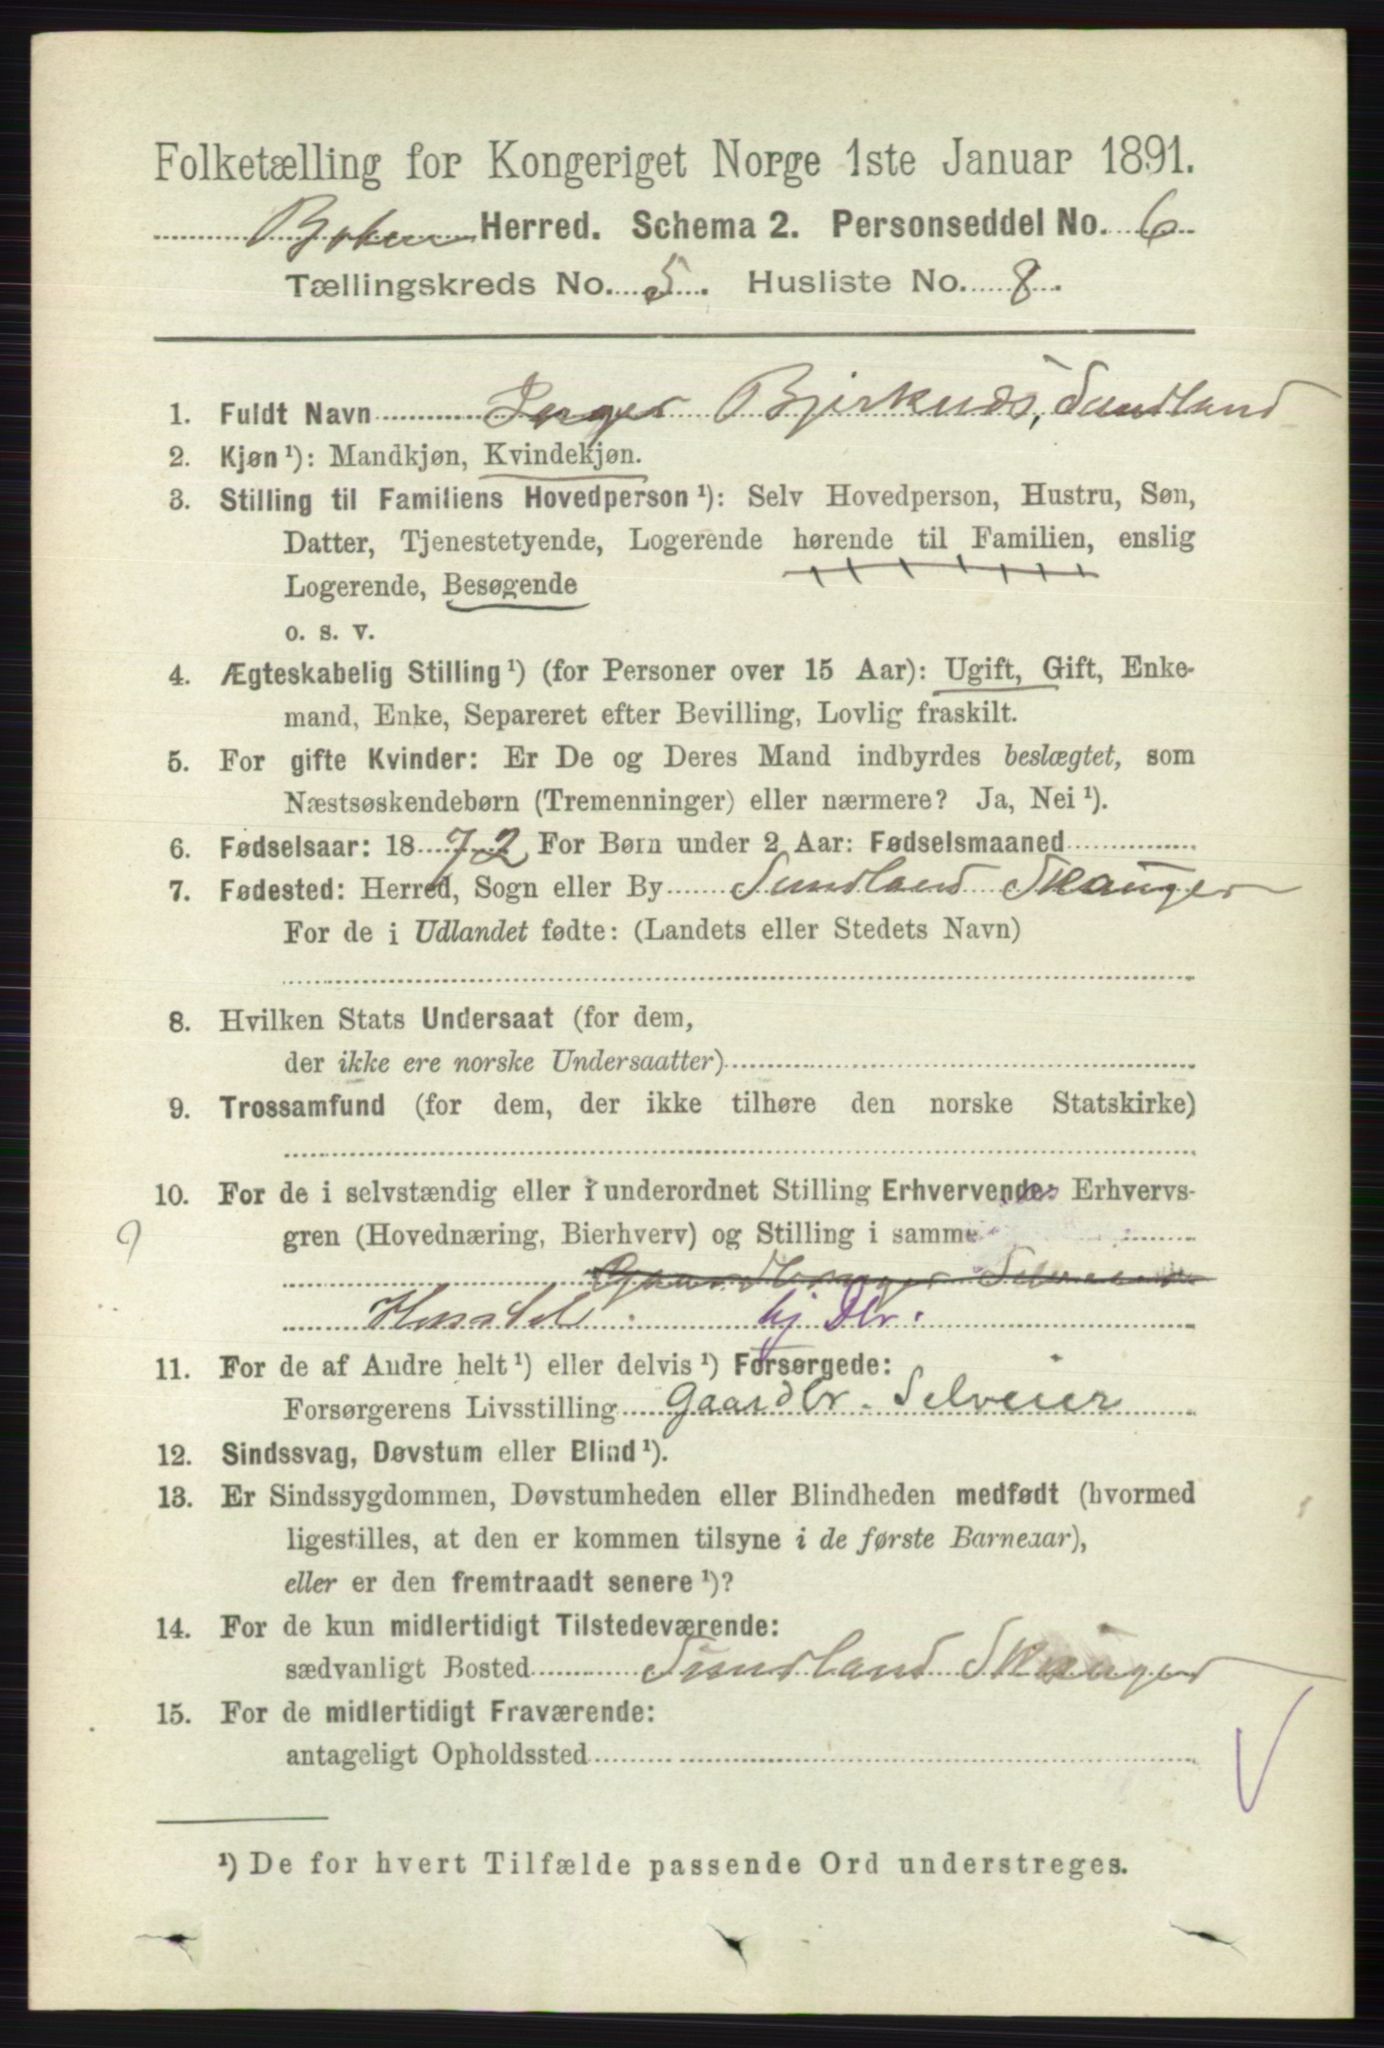 Folketælling for Kongeriget Norge 1ste Januar 1891.
Herred. Schema 2. Personseddel No. 6
Tællingskreds No. 5. Husliste No. 8.
1. Fuldt Navn Inger Bjerknæs, Sundland
2. Kjøn ¹): Mandkjøn, Kvindekjøn.
3. Stilling til Familiens Hovedperson ¹): Selv Hovedperson, Hustru, Søn,
Datter, Tjenestetyende, Logerende hørende til Familien, enslig
Logerende, Besøgende
o. s. v.
4. Ægteskabelig Stilling ¹) (for Personer over 15 Aar): Ugift, Gift, Enke-
mand, Enke, Separeret efter Bevilling, Lovlig fraskilt.
5. For gifte Kvinder: Er De og Deres Mand indbyrdes beslægtet, som
Næstsøskendebørn (Tremenninger) eller nærmere? Ja, Nei ¹).
6. Fødselsaar: 1872 For Børn under 2 Aar: Fødselsmaaned
7. Fødested: Herred, Sogn eller By Sundland Skauger
For de i Udlandet fødte: (Landets eller Stedets Navn)
8. Hvilken Stats Undersaat (for dem,
der ikke ere norske Undersaatter)
9. Trossamfund (for dem, der ikke tilhøre den norske Statskirke)
10. For de i selvstændig eller i underordnet Stilling Erhvervende: Erhvervs-
gren (Hovednæring, Bierhverv) og Stilling i samme
Gaardbruger Selveier
hj Dtr.
11. For de af Andre helt ¹) eller delvis ¹) Forsørgede:
Forsørgerens Livsstilling Gaardbr. Selveier
12. Sindssvag, Døvstum eller Blind ¹).
13. Er Sindssygdommen, Døvstumheden eller Blindheden medfødt (hvormed
ligestilles, at den er kommen tilsyne i de første Barneaar),
eller er den fremtraadt senere ¹)?
14. For de kun midlertidigt Tilstedeværende:
sædvanligt Bosted Sundland Skauger
15. For de midlertidigt Fraværende:
antageligt Opholdssted
¹) De for hvert Tilfælde passende Ord understreges.